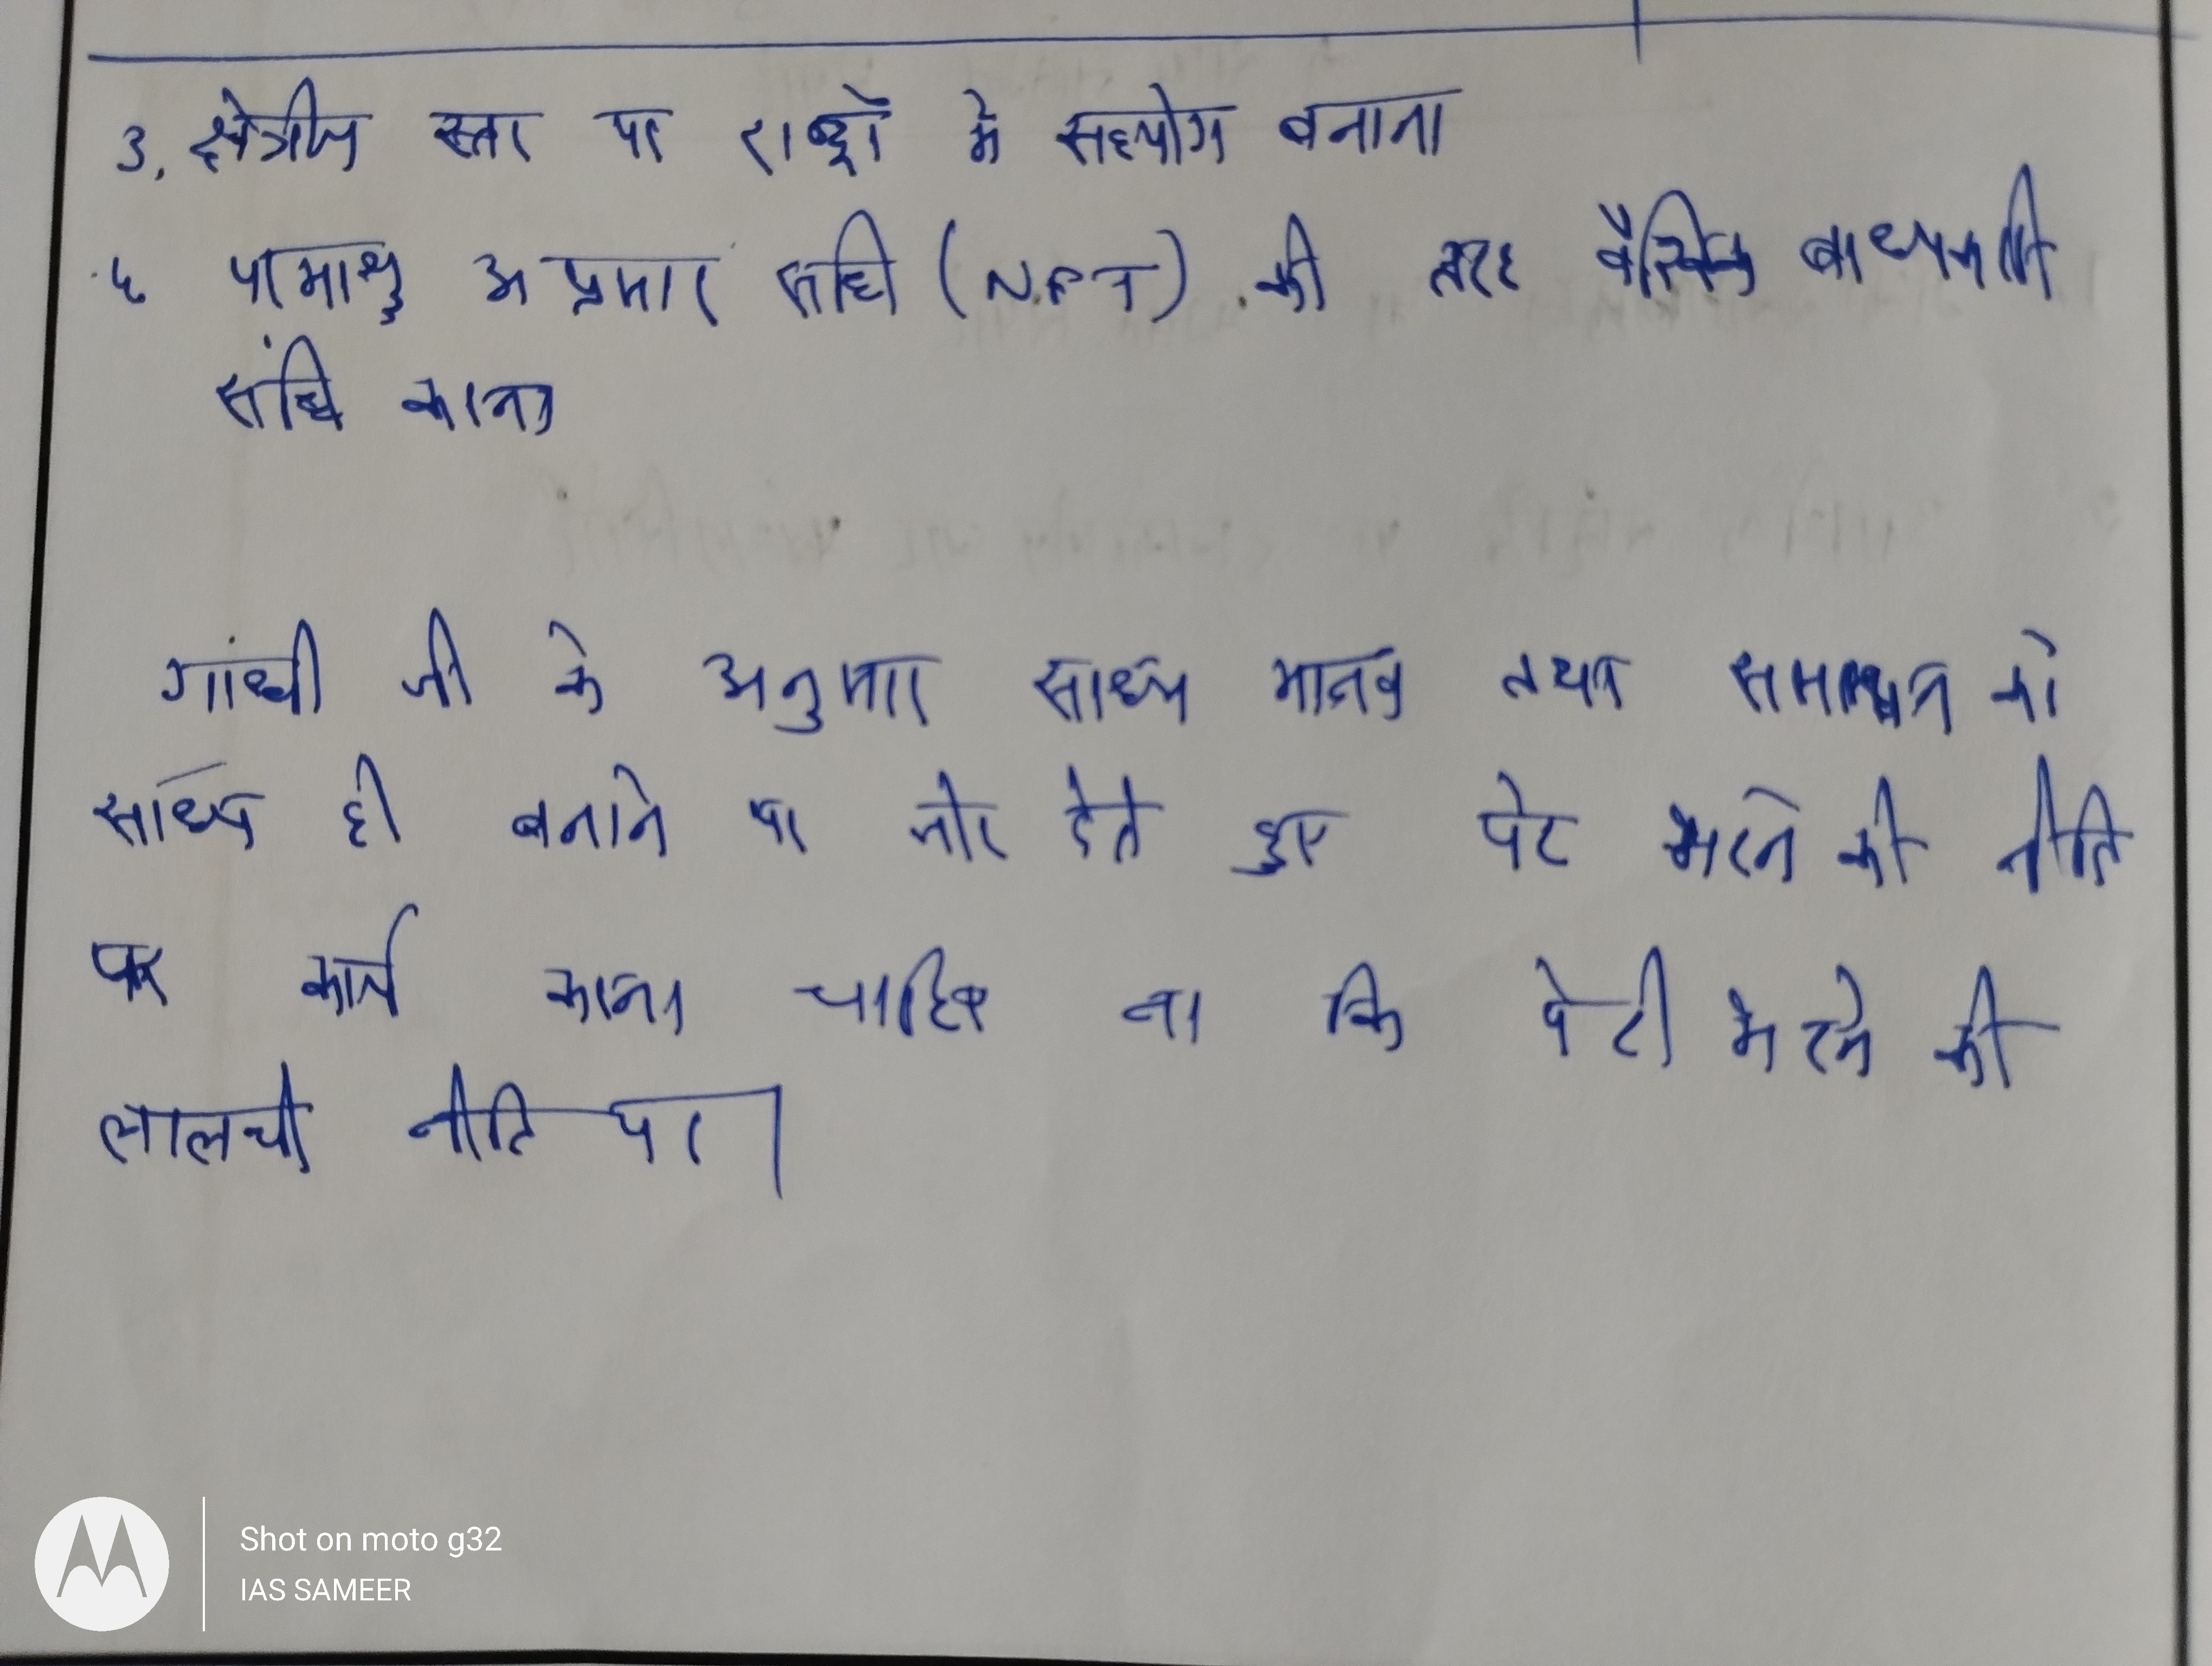 3. क्षेत्रीय स्तर पर राष्ट्रों मे सहयोग बनाना
परमाणु अप्रसार संधि (N.P.T) की तरह वैश्विक बाध्यकारी
संधि करना
गांधी जी के अनुसार साध्य मानव तथा को
साध्य ही बनाने पर जोर देते हुए पेट भरने की नीति
पर कार्य करना चाहिए ना कि पेटी भरने की
लालची नीति पर।
Shot on moto g32
IAS SAMEER